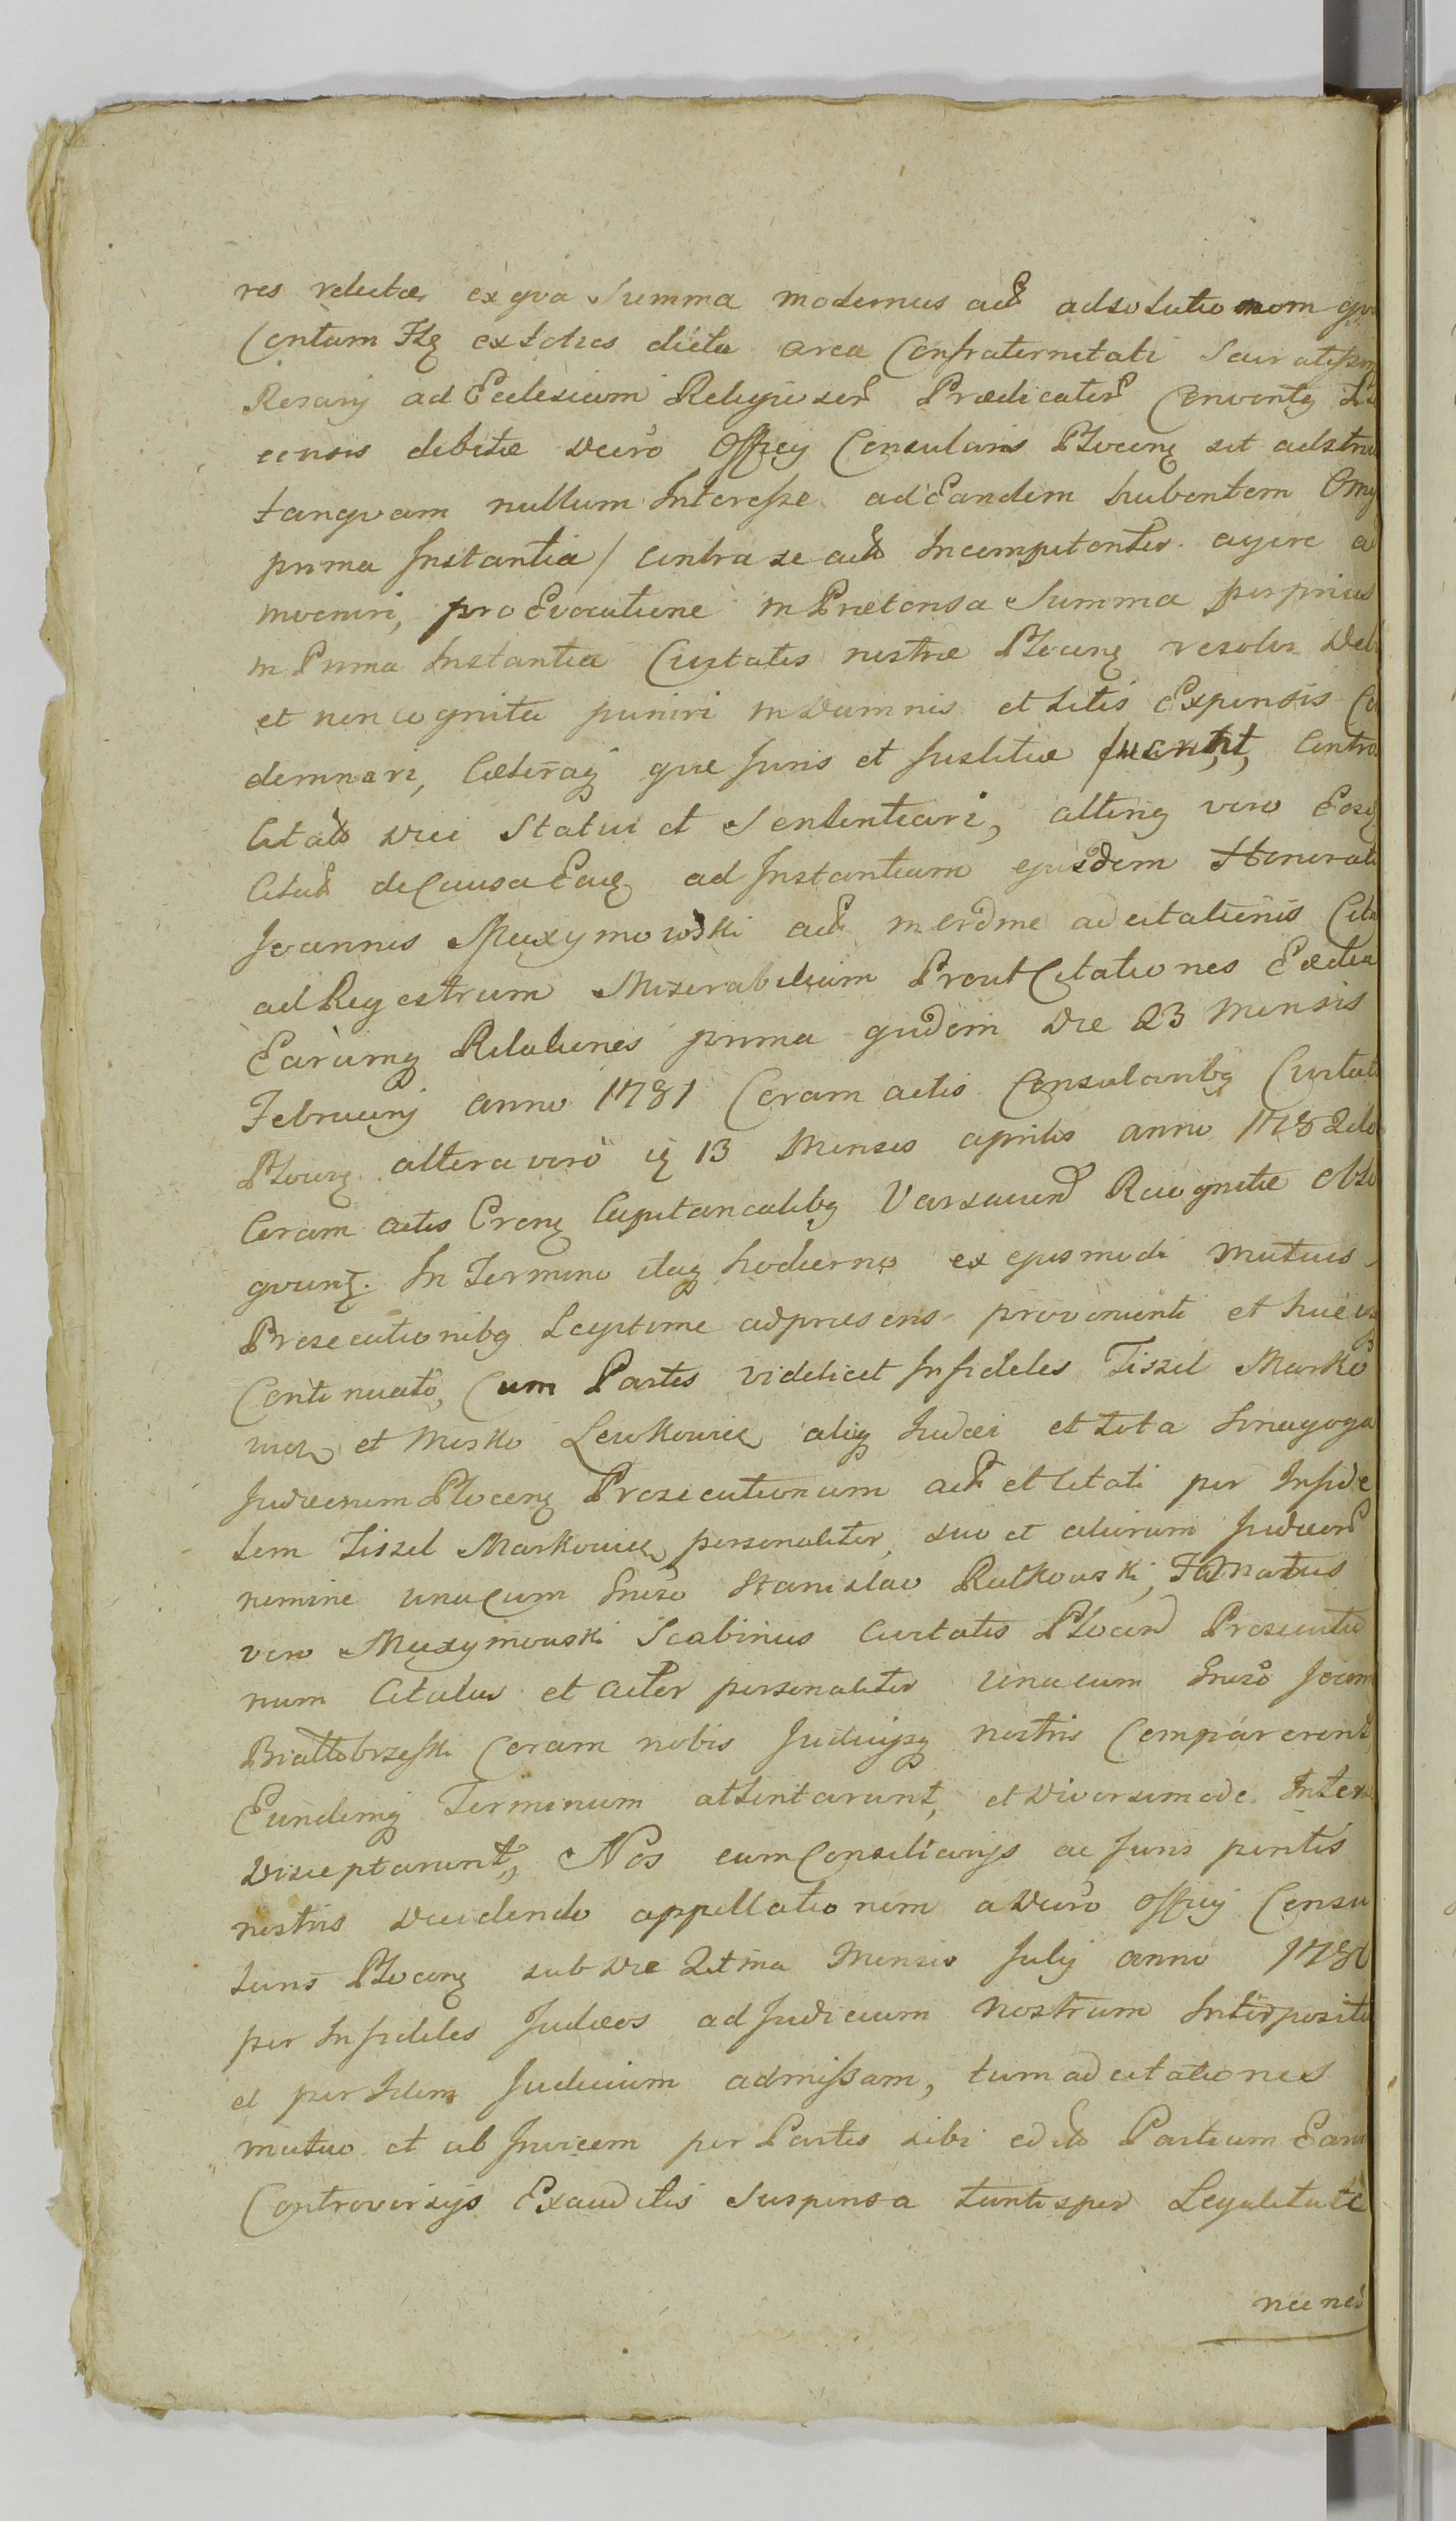 res relictæ ex qva Summa modernus act adsolutionem qvo
Centum Flo extoties dicta area Confraternitati Sacratissi
Rosarij ad Ecclesiam Religiosor Prædicator Conventq Pło
censis debitæ decro Officij Consularis Płocenq sit adstri
tanqvam nullum Interesse ad Eandem habentem Omq
prima Instantia / contra se acto Incompetenter agere ad
inveniri, pro Evocatione in Prætensa Summa per prius
in Prima Instantia Civitatis nostræ Płocenq resolvi deb
et non cognita puniri in damnis et litis Expensis Co
demnari, Cæteraq qvæ Juris et Justitiæ fuerint, Contra
Citato deci Statui et Sententiari, alterq vero Eosq
Citat de Causa Eaq ad Instantiam ejusdem Honorati
Joannis Maxymowski act in ordine ad citationis Cita
ad Regestrum Miserabilium Prout Citationes Eædem
Earumq Relationes prima qvidem die 23 Mensis
Februarij anno 1781 Coram actis Consularibq Civitat
Płocenq altera vero iq 13 Mensis aprilis anno 1782do
Coram actis Crenq Capitanealibq Varsavien Recognitæ Obl
qvunt. In Termino itaq hodierno ex ejusmodi mutuis
Prosecutionibq Legitime ad præsens provenienti et huc usq
Continuato, Cum Partes videlicet Infideles Tiszel Marko
wicz et Mosko Lewkowicz aliiq Judæi et tota Sinagoga
Judæorum Płocenq Prosecutionum act et Citati per Infide
lem Tiszel Markowicz personaliter, suo et aliorum Judæor
nomine una Cum Gneso Stanislao Rutkowski, Famatus
vero Maxymowski Scabinus Civitatis Płocen Prosecutio
num Citatus et actor personaliter una cum Gneso Joan
Białłobrzeski Coram nobis Judicijsq nostris Comparerent,
Eundemq Terminum attentarunt, et diversimode Inter se
disceptarunt, Nos cum Consiliarijs ac Juris peritis
nostris decidendo appellationem a decro Officij Consu
laris Płocenq sub die 21ma Mensis Julij anno 1780
per Infideles Judæos ad Judicium nostrum Interposit
et per Idem Judicium admissam, tum ad citationes
mutuo et ab Invicem per Partes sibi edito Partium Earu
Controversijs Exauditis Suspensa tantisper Legalitate
nec no